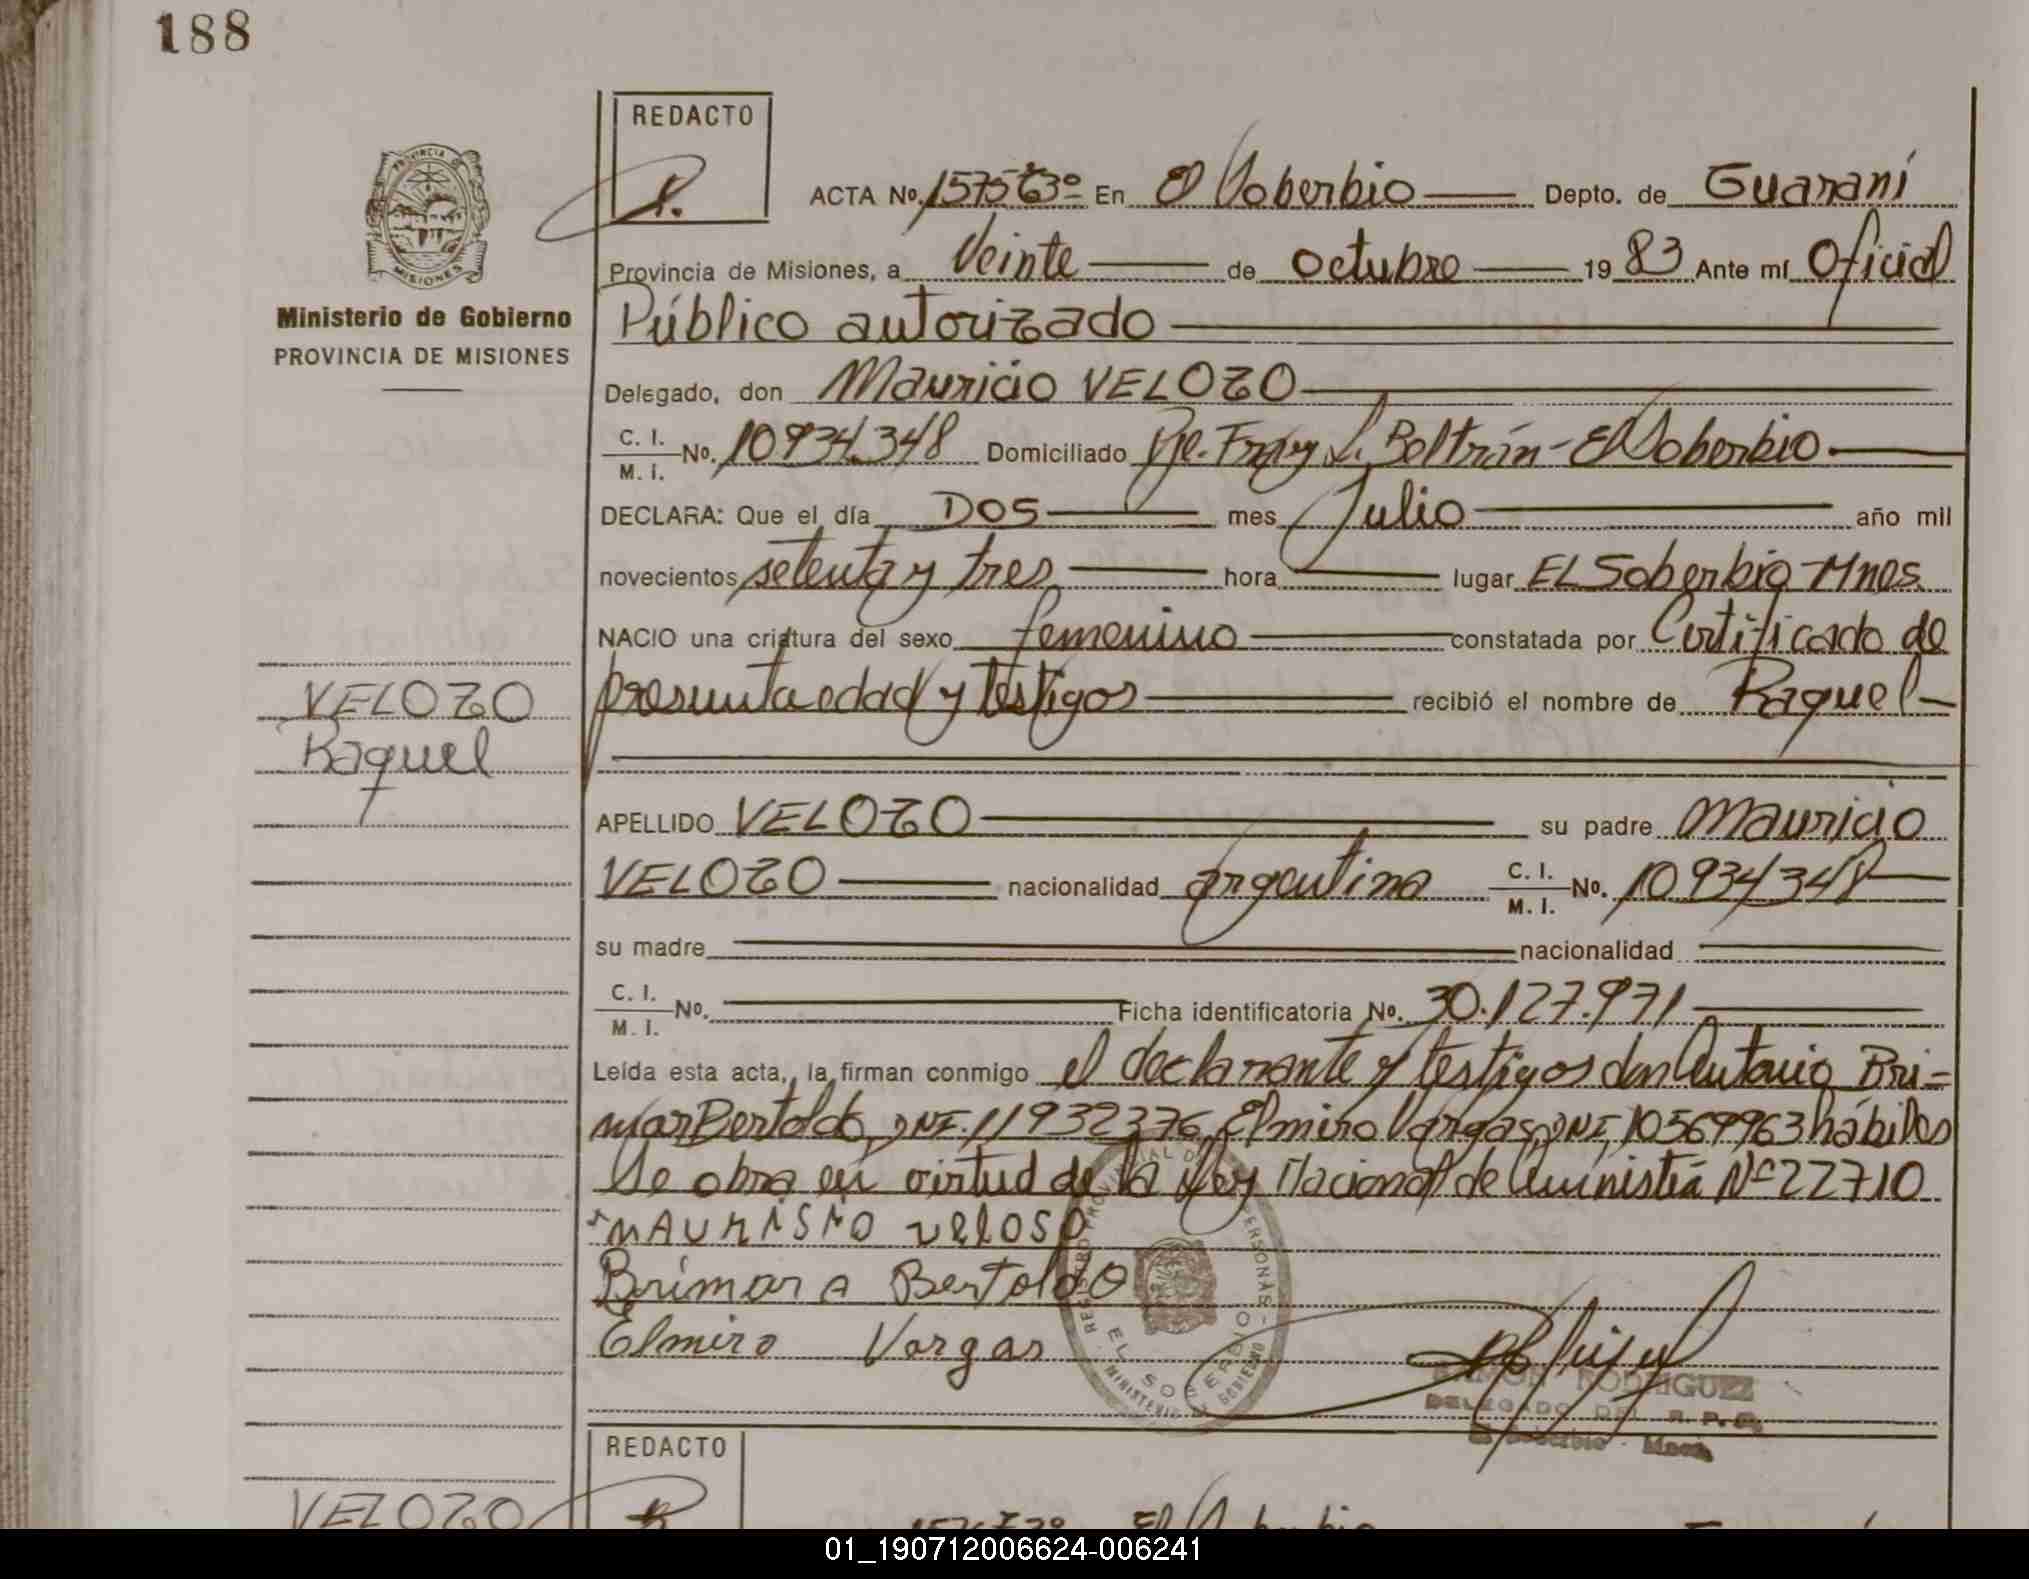 188
REDACTO
PROVINCIA DE
MISIONES
Ministerio de Gobierno
PROVINCIA DE MISIONES
ACTA Nº 157563º En El Soberbio Depto. de Guaraní
Provincia de Misiones, a Veinte de Octubre 1983 Ante mí Oficial
Público autorizado
Delegado, don Mauricio VELOZO
C. I. / M. I. Nº. 10934.348 Domiciliado Pje. Fray L. Beltrán - El Soberbio.
DECLARA: Que el día DOS mes Julio año mil
novecientos setenta y tres hora lugar EL Soberbio - Mnes.
NACIO una criatura del sexo femenino constatada por Certificado de
presunta edad y testigos recibió el nombre de Raquel
VELOZO
Raquel
APELLIDO VELOZO su padre Mauricio
VELOZO nacionalidad argentina C. I. / M. I. Nº. 10934348
su madre nacionalidad
C. I. / M. I. Nº. Ficha identificatoria Nº. 30.127.971
Leída esta acta, la firman conmigo el declarante y testigos don Antonio Bri-
mar Bertoldo, DNI. 11932376, Elmiro Vargas, DNI, 10569963 hábiles
Se obra en virtud de la Ley Nacional de Aminístia Nº 22710
MAURISIO VELOSO
Brimar A Bertoldo
Elmiro Vargas
REGISTRO PROVINCIAL DE LAS PERSONAS
EL SOBERBIO
MINISTERIO DE GOBIERNO
RAMON RODRIGUEZ
DELEGADO DEL R. P. P.
El Soberbio - Mnes.
REDACTO
VELOZO
El Soberbio
01_190712006624-006241